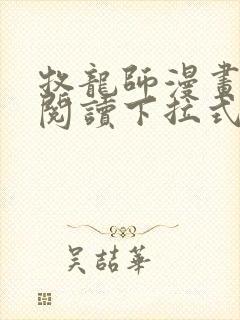 牧龍師漫畫
閱讀下拉式
吴喆華